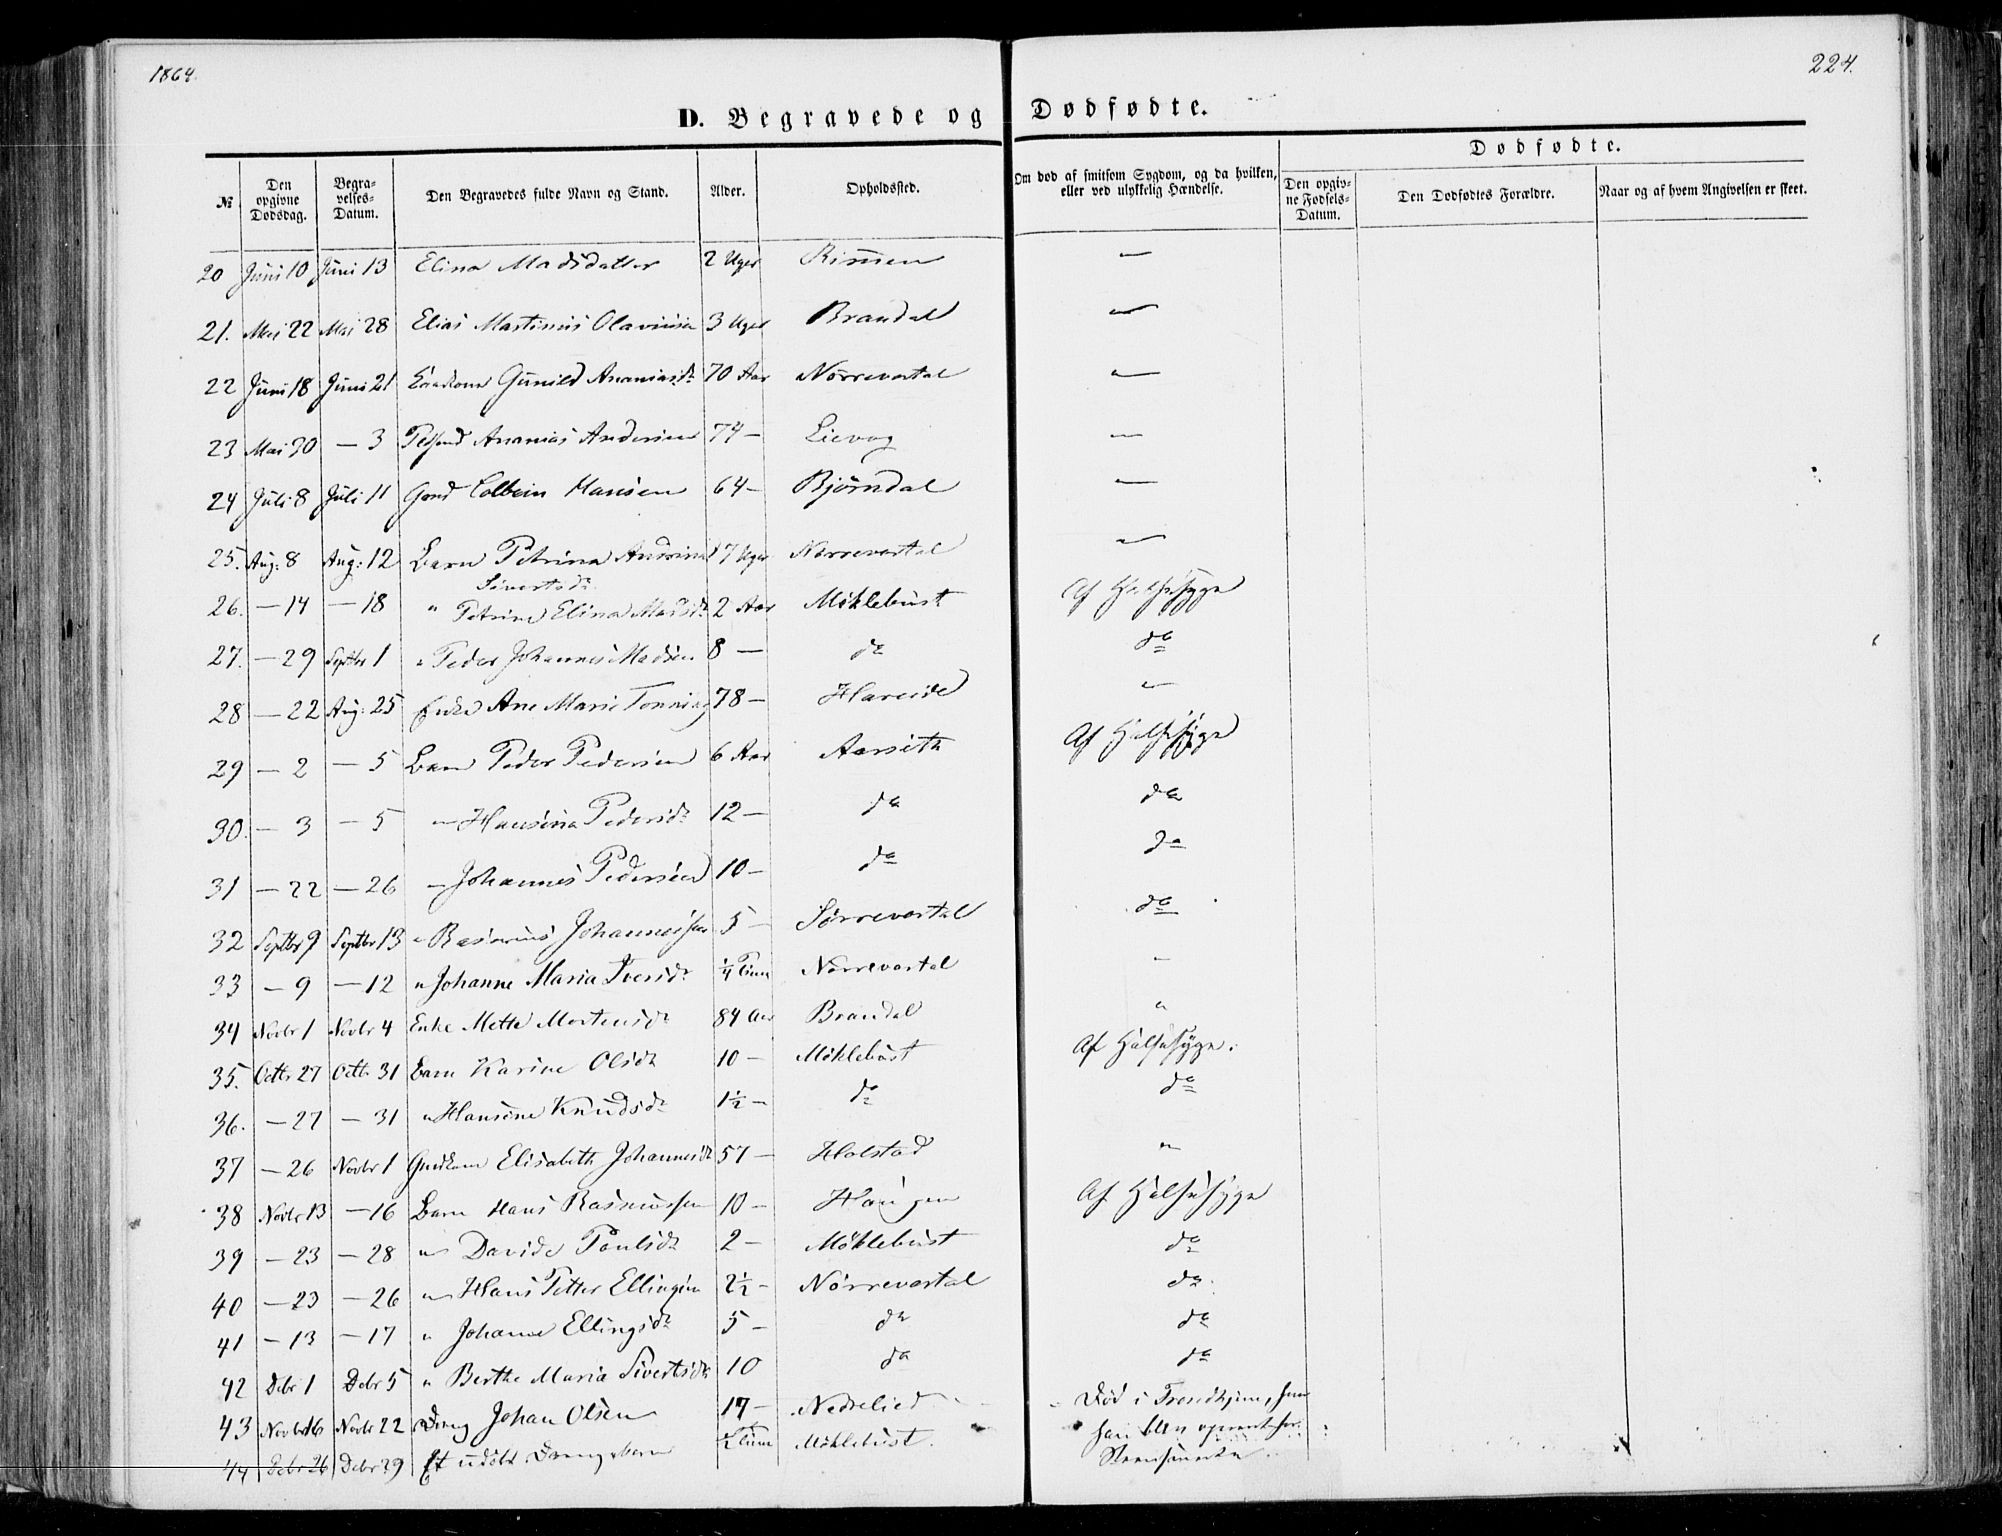 1864.
224.
D. Begravede og Dødfødte.
№
Den opgivne Dødsdag.
Begravelses-Datum.
Den Begravedes fulde Navn og Stand.
Alder.
Opholdssted.
Om død af smitsom Sygdom, og da hvilken, eller ved ulykkelig Hændelse.
Dødfødte.
Den opgivne Fødsels-Datum.
Den Dødfødtes Forældre.
Naar og af hvem Angivelsen er skeet.
20 Juni 10 Juni 13 Elina Madsdatter 2 Uger Rismen —
21. Mai 22 Mai 28 Elias Martinus Olavinsen 3 Uger Brandal —
22 Juni 18 Juni 21 Gunild Ananiasdr 70 Aar Nörrevartal —
23 Mai 30 — 3 Ananias Andersen 74 — Lievog —
24 Juli 8 Juli 11 Gmd Colbein Hansen 64 — Björndal —
25. Aug: 8 Aug: 12 Barn Petrina Andrina 17 Uger Nörrevartal —
Sivertsdr
26. — 14 — 18 " Petrine Elina Madsdr 2 Aar Möklebust Af Halsesyge
27. — 29 Septbr 1 " Peder Johannes Madsen 8 — do do
28 — 22 Aug: 25 Enke Ane Marie Tonning 78 — Hareide —
29 — 2 — 5 Barn Peder Pedersen 6 Aar Aarseth Af Halsesyge
30. — 3 — 5 — Hansina Pedersdr 12 — do do
31 — 22 — 26 — Johannes Pedersen 10 — do do
32 Septbr 9 Septbr 13 " Rasmus Johannessen 5 — Sörrevartal do
33 — 9 — 12 " Johanne Maria Iversdr ¼ Time Nörrevartal —
34 Novbr 1 Novbr 4 Enke Mette Mortensdr 84 Aar Brandal "
35. Octbr 27 Octbr 31 Barn Karine Olsdr 10 — Möklebust Af Halsesyge.
36. — 27 — 31 " Hansine Knudsdr 1½ — do do
37 — 26 Novbr 1 Elisabeth Johannesdr 57 — Holstad "
38 Novbr 13 — 16 Barn Hans Rasmussen 10 — Haugen Af Halsesyge
39 — 23 — 28 " Davide Poulsdr 2 — Möklebust do
40 — 23 — 26 " Hans Petter Ellingsen 2½ — Nörrevartal do
41 — 13 — 17 " Johanne Ellingsdr 5 — do do
42 Debr 1 Debr 5 " Berthe Maria Sivertsdr 10 do do
43 Novbr 16 Novbr 22 Dreng Johan Olsen 17 — Nedrelied Död i Trondhjem, hvor
han blev opereret for
Steensmerte
44 Debr 26 Debr 29 Et udöbt Drengebarn ½ Time Möklebust.